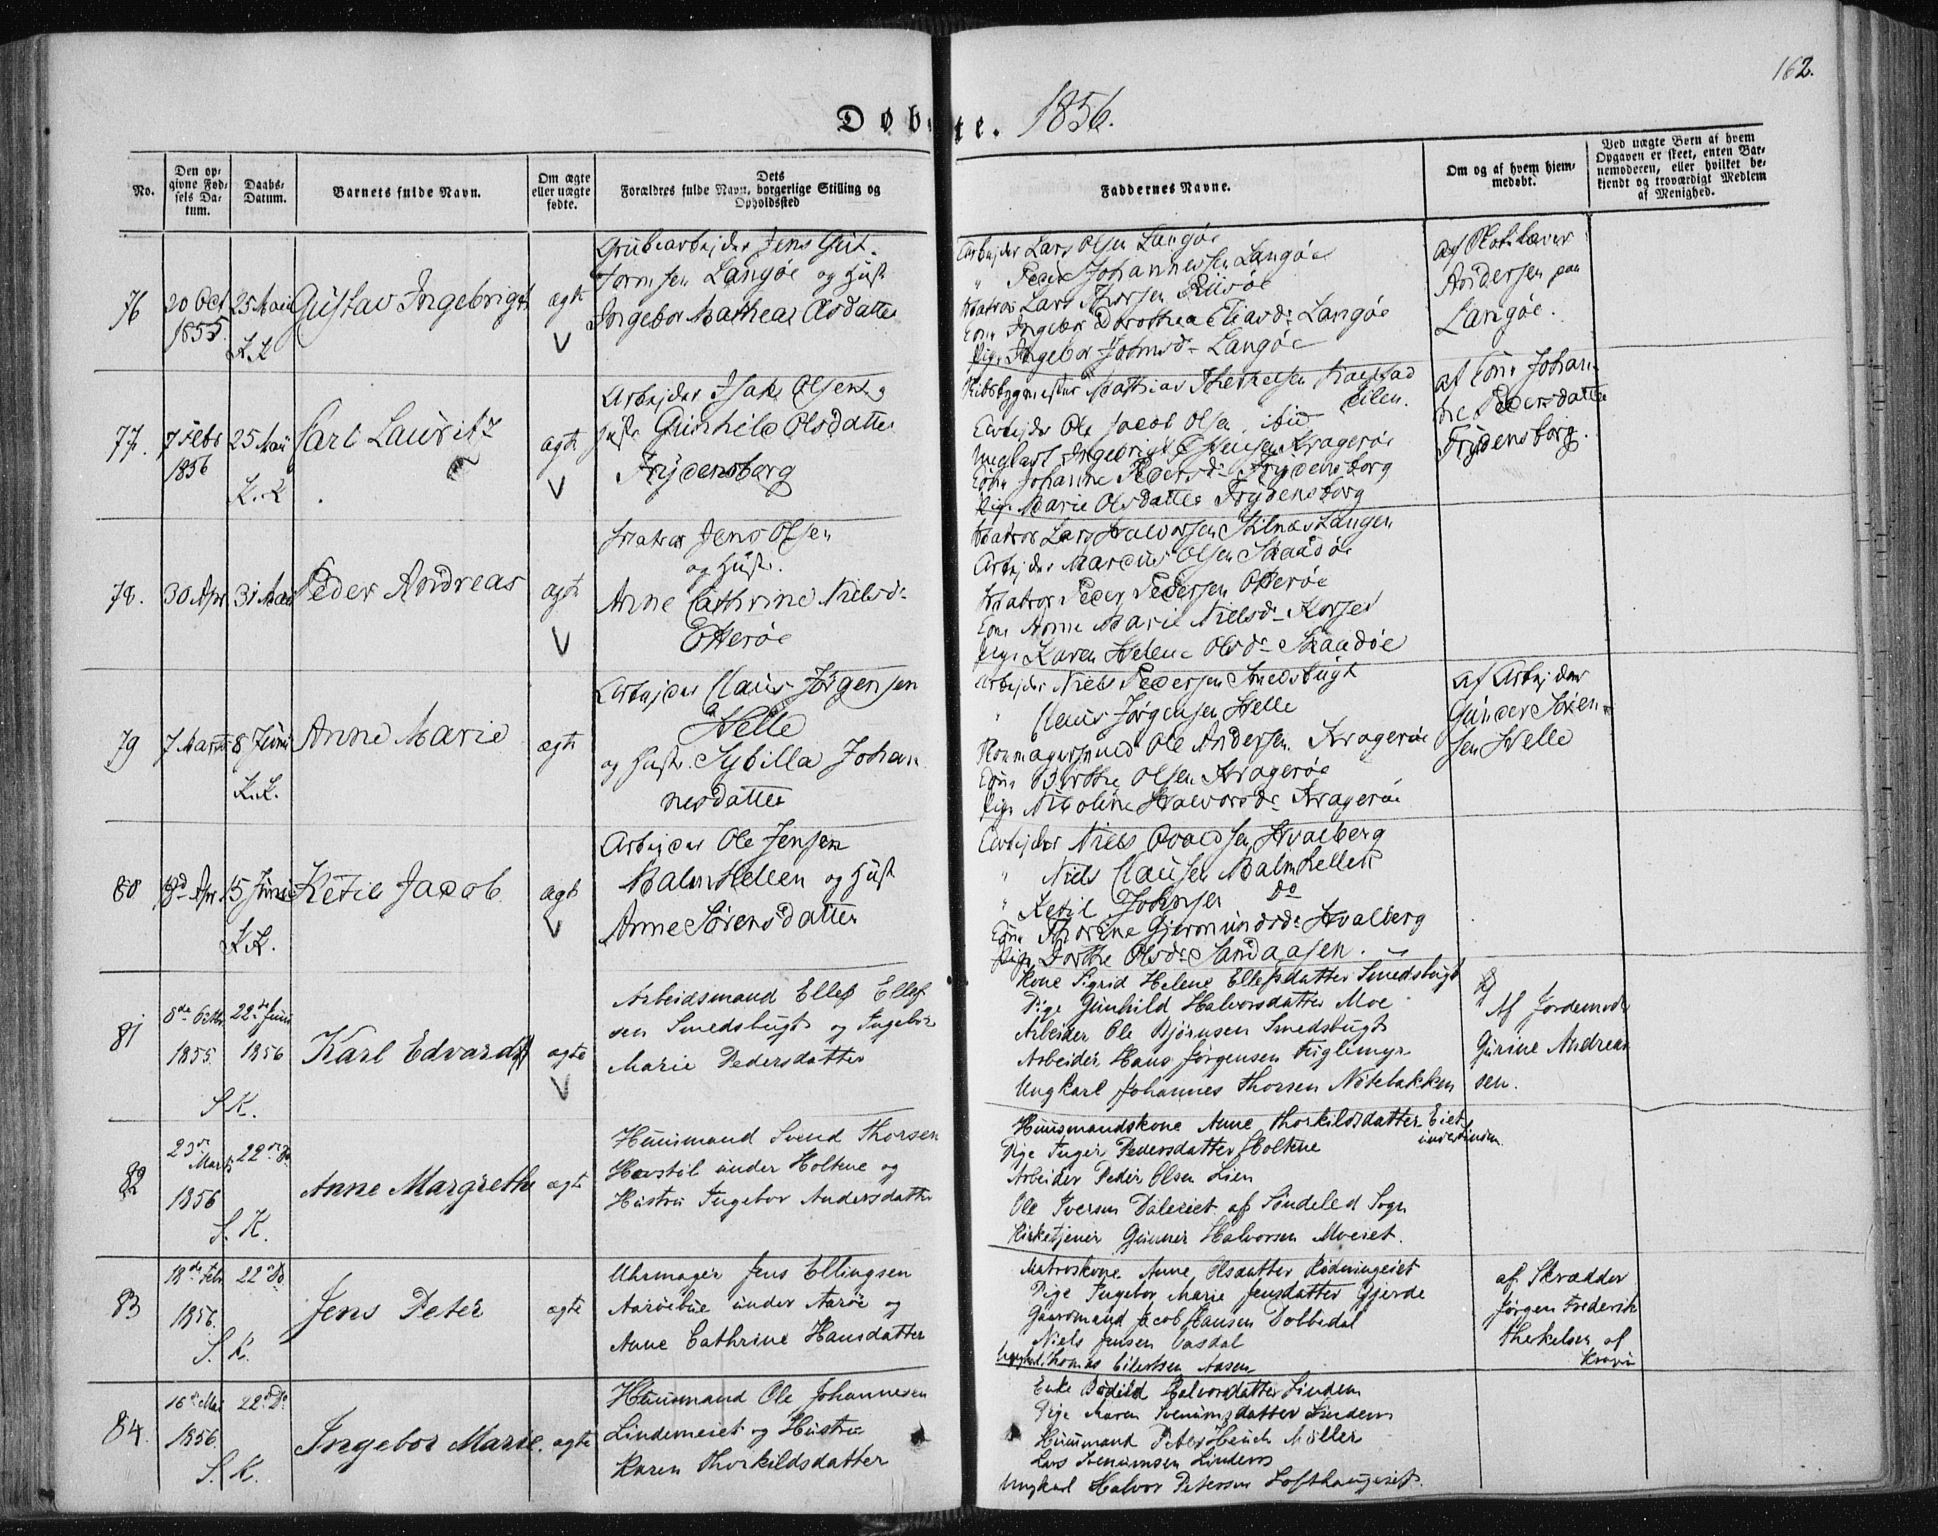 162.
Døbte. 1856.
No.
Den opgivne Fødsels Datum.
Daabs-Datum.
Barnets fulde Navn.
Om ægte eller uægte fødte.
Dets Forældres fulde Navn, borgerlige Stilling og Opholdssted
Faddernes Navne.
Om og af hvem hjemmedøbt.
Ved uægte Børn af hvem Opgaven er skeet, enten Barnemoderen, eller hvilket bekjendt og troværdigt Medlem af Menighed.
76
20 Oct
1855.
25 Maii
K.K
Gustav Ingebrigt
ægte
V
Grubearbejder Jens Gut-
tormsen Langøe og Hust
Ingebor Mathea Olsdatter
Arbejder Lars Olsen Langøe
" Peder Johannesen Langøe
Matros Lars Thorsen
Kone Ingebor Dorothea Eliasdr Langøe
Pige Ingebor Johnsdr Langøe
af
Andersen paa
Langøe.
77.
7 Febr
1856
25 Maii
K.K
Carl Lauritz
ægte
V
Arbejder Isak Olsen og
Hustr Gunhild Olsdatter
Frydensborg
Skibsbygmester Mathias
Arbejder Ole Jacob Olsen ibid
Ungkarl Ingebrigt Kragerøe
Kone Johanne Pedersdr Frydensborg
Pige Marie Olsdatter Frydensborg
af Kone Johan-
ne Pedersdatter
Frydensborg.
78.
30 Apr
31 Maii
Peder Andreas
ægte
V
Matros Jens Olsen
og Hustr.
Anne Cathrine Nielsdr
Otterøe
Matros Lars Halvorsen Stilnæstangen
Arbejder Marcus Olsen Skaadøe
Matros Peder Pedersen Otterøe
Kone Anne Marie Nielsdr Korset
Pige Karen Helene Olsdr Skaadøe
79
7 Marts
8 Junii
K.K.
Anne Marie
ægte
Arbejder Claus Jørgensen
Helle
og Hustr. Sybilla Johan
nesdatter
Arbejder Niels Pedersen Smedsbugt
" Claus Jørgensen Helle
Skomagersvend Ole Andersen Kragerøe
Kone Birthe Olsen Kragerøe
Pige Nicoline Halvorsdr Kragerøe
af Arbejder
Gunder Søren-
sen Helle
80
Apr
15 Junii
K.K.
Ketil Jacob
ægte
V
Arbejder Ole Jensen
Malmhellen og Hust
Anne Sørensdatter
Arbejder Niels Hvalberg
" Niels Clausen Malmhellen
" Ketil Johnsen Do
Kone Thorine Gjermundsdr Hvalberg
Pige Dorthe Olsdr Sandaasen.
81
8de Octbr
1855.
22de Juni
1856
S.K.
Karl Edvard
ægte
V
Arbeidsmand Ellef Ellef
sen Smedsbugt og Ingebor
Marie Pedersdatter
Kone Sigrid Helene Ellefsdatter Smedsbugt
Pige Gunhild Halvorsdatter Moe
Arbeider Ole Bjørnsen Smedsbugt
Arbeider Hans Jørgensen Fuglemyr
Ungkarl Johannes Thorsen Nøtebakken
Af Jordemoder
Gurine Andreas
sen.
82
23de
Marts
1856
22de Do
S.K.
Anne Margrethe
ægte
Huusmand Svend Thorsen
Havstøl under Holtene og
Hustru Ingebor Andersdatter
Huusmandskone Anne Thorkildsdatter Eiet
Pige Inger Pedersdatter Holtene
Arbeider Peder Olsen Lien
Ole Iversen Daleeiet af Søndeled Sogn
Kirketjener Gunner Halvorsen Moeiet.
83
18de Febr
1856.
22de Do
S.K.
Jens Peter
ægte
Uhrmager Jens Ellingsen
Aarøebue under Aarøe og
Anne Cathrine Hansdatter
Matroskone Anne Olsdatter Rødningeiet
Pige Ingebor Marie Jensdatter Gjerde
Gaardmand Jacob Hansen Dobbedal
Niels Jensen Vasdal
Ungkarl Thomas Eilertsen Aasen
af Skrædder
Jørgen Frederik
Thekelsen af
84.
16de Mai
1856.
22de Do
S.K.
Ingebor Marie.
ægte
Huusmand Ole Johannesen
Lindemeiet og Hustru
Karen Thorkildsdatter
Enke Bodild Halvorsdatter Lindem
Pige Maren Svenumsdatter Lindem
Huusmand Peter Heuch Møller
Lars Svenumsen Lindem
Ungkarl Halvor Petersen Lofthaugeiet.